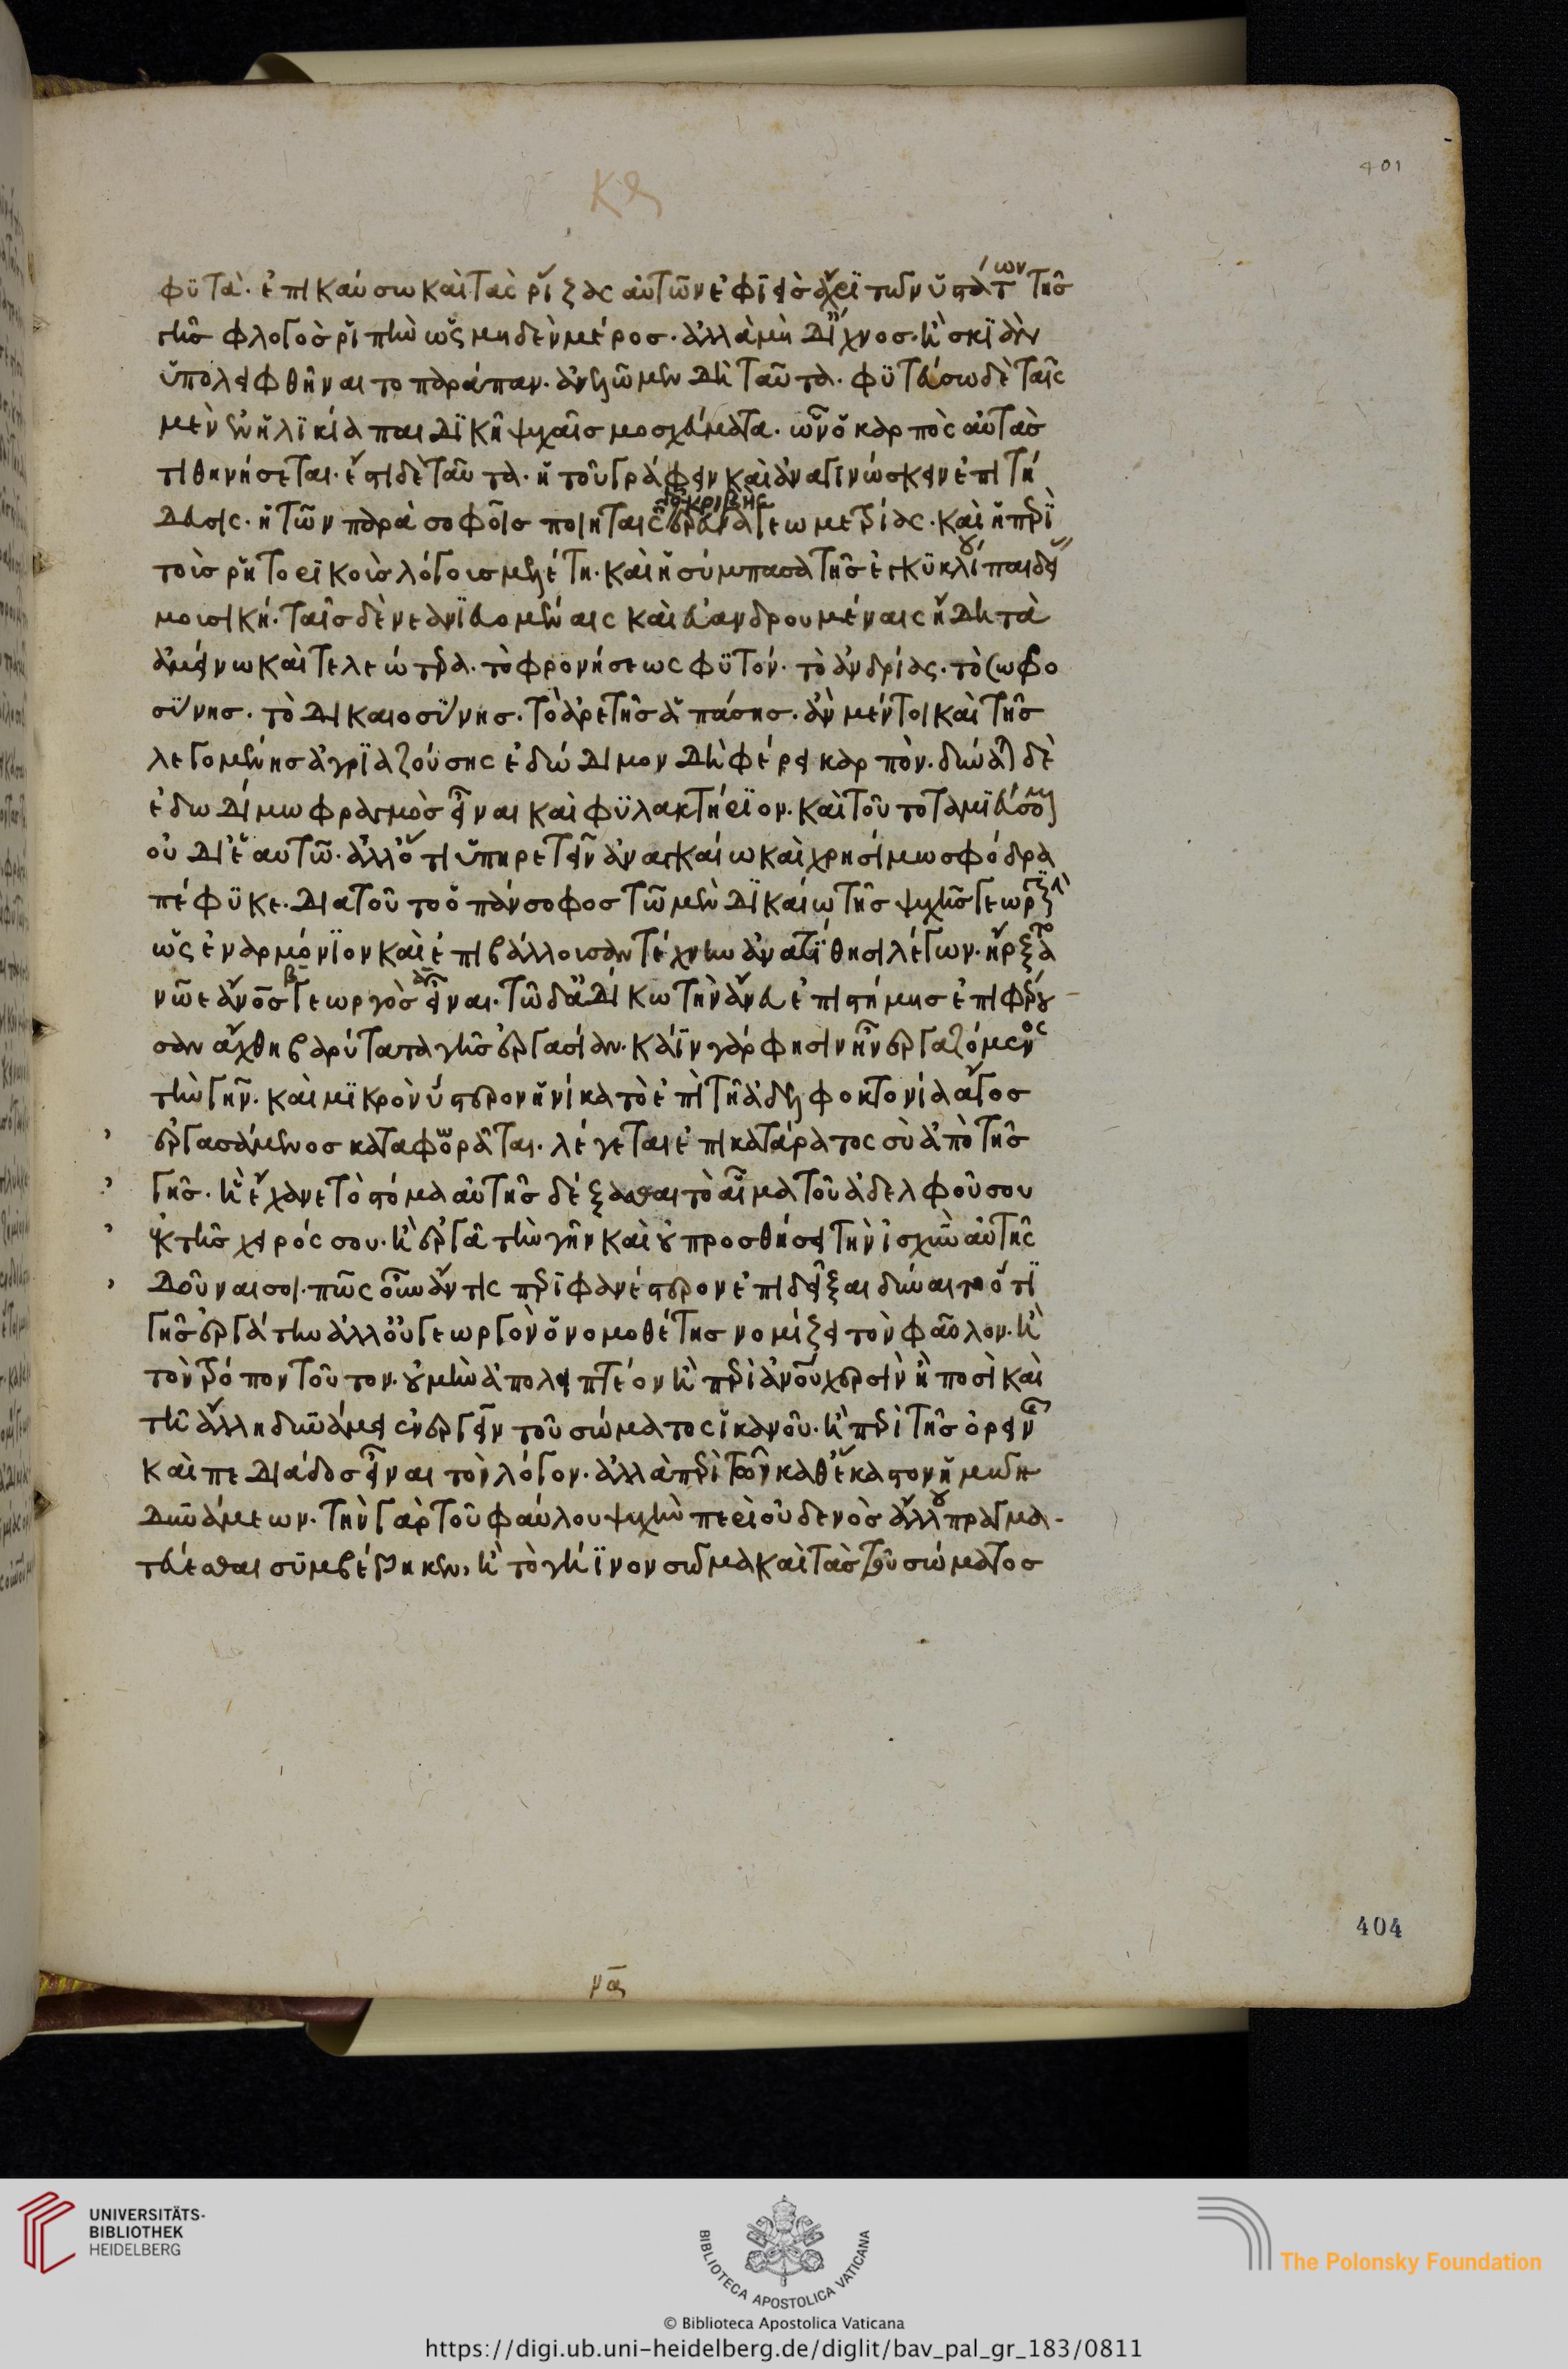 401
κς
φϋτὰ. ἐπικαύσω καὶ τὰς ῥίζας αὐτῶν ἐφϊεὶσ ἄχρϊ τῶν ὑστάτων τῆσ
τῆσ φλογὸς ῥϊπὴν ὡς μηδὲν μέροσ. ἀλλὰ μὴ δΐχνοσ. ἢ σκϊὰν
ὑπολειφθῆναι το παράπαν. ἀνελῶ μὲν δὴ ταῦτα. φϋτεύσω δὲ ταῖς
μὲν ἐν ἡλϊκία παιδϊκῆ ψυχαῖσ μοσχεύματα. ὧν ὁ καρπὸς αὐτὰσ
τιθηνήσεται. ἔστι δὲ ταῦτα. ἡ τοῦ γράφειν καὶ ἀναγινώσκειν ἐπιτή
δευσις. ἡ τῶν παρὰ σοφοῖσ ποιηταῖς ἀκριβὴς ἔρευνα γεωμετρίας. καὶ ἡ πρὶ
τοὺσ ρητορϊκοὺσ λόγουσ μελέτη. καὶ ἡ σύμπασα τῆσ ἐγκϋκλίου παιδεί
μουσικὴ. ταῖσ δὲ νεανϊευομέναις καὶ εὐανδρουμέναις ἤδη τὰ
ἀμείνω καὶ τελεώτερα. τὸ φρονήσεως φϋτόν. τὸ ἀνδρίας. τὸ σωφρο
σΰνησ. τὸ δικαιοσΰνησ. τὸ ἀρετῆσ ἁπάσησ. ἂν μέντοι καὶ τῆσ
λεγομένησ ἀγρϊαζούσης ἐδώδιμον δὴ φέρει καρπὸν. δύναται δὲ
ἐδωδίμω φραγμὸσ εἶναι καὶ φϋλακτήρϊον. καὶ τοῦτο ταμϊεύσομαι
οὐ δι ἑαυτῶ. ἀλλ ὅτι ὑπηρετεῖν ἀναγκαίω καὶ χρησίμω σφόδρα
πέφϋκε. δια τοῦτο ὁ πάνσοφοσ τῶ μὲν δϊκαίω τῆσ ψυχῆσ γεωργϊκὴν
ὡς ἐναρμόνϊον καὶ ἐπιβάλλουσαν τέχνην ἀνατΐθησι λέγων. ἤρξατο
νῶε ἄνοσ γεωργὸσ εἶναι. τῶ δ ἀδίκω τὴν ἄνευ ἐπιστήμησ ἐπιφέρου
σαν ἄχθη βαρύτατα γῆσ ἐργασίαν. κάϊν γάρ φησιν ἦν ἐργαζόμενος
τὴν γῆν. καὶ μϊκρὸν ὕστερον ἡνίκα τὸ ἐπὶ τῆ ἀδελφοκτονία ἄγοσ
ἐργασάμενοσ καταφωρᾶται. λέγεται ἐπικατάρατος σὺ ἀπὸ τῆσ
γῆσ. ἣ ἔχανε τὸ στόμα αὐτῆσ δέξασθαι τὸ αἷμα τοῦ ἀδελφοῦ σου
ἐκ τῆσ χειρός σου. ἢ ἐργᾶ τὴν γῆν καὶ οὐ προσθήσει τὴν ἰσχὺν αὐτῆς
δοῦναι σοι. πῶς οὖν ἄν τις πρϊφανέστερον ἐπιδεῖξαι δύναιτο ὅτϊ
γῆσ ἐργάτην ἀλλ οὐ γεωργὸν ὁ νομοθέτησ νομίζει τὸν φαῦλον. ἢ
τὸν τρόπον τοῦτον. οὐ μὴν ἀπολειπτέον ἢ πρὶ ἀνοῦ χερσὶν ἢ ποσὶ καὶ
τῆ ἄλλη δυνάμει ἐνεργεῖν τοῦ σώματος ἱκανοῦ. ἢ πρὶ τῆσ ὀρεινῆ
καὶ πεδιάδοσ εἶναι τὸν λόγον. ἀλλὰ πρὶ τῶν καθ ἕκαστον ἡμῶν
δυνάμεων. τὴν γὰρ τοῦ φαύλου ψυχὴν περὶ οὐδενὸσ ἄλλου πραγμα-
τεύεσθαι συμβέβηκεν, ἢ τὸ γήϊνον σῶμα καὶ τὰσ τοῦ σώματοσ
404
UNIVERSITÄTS-
BIBLIOTHEK
HEIDELBERG
BIBLIOTECA APOSTOLICA VATICANA
The Polonsky Foundation
© Biblioteca Apostolica Vaticana
https://digi.ub.uni-heidelberg.de/diglit/bav_pal_gr_183/0811